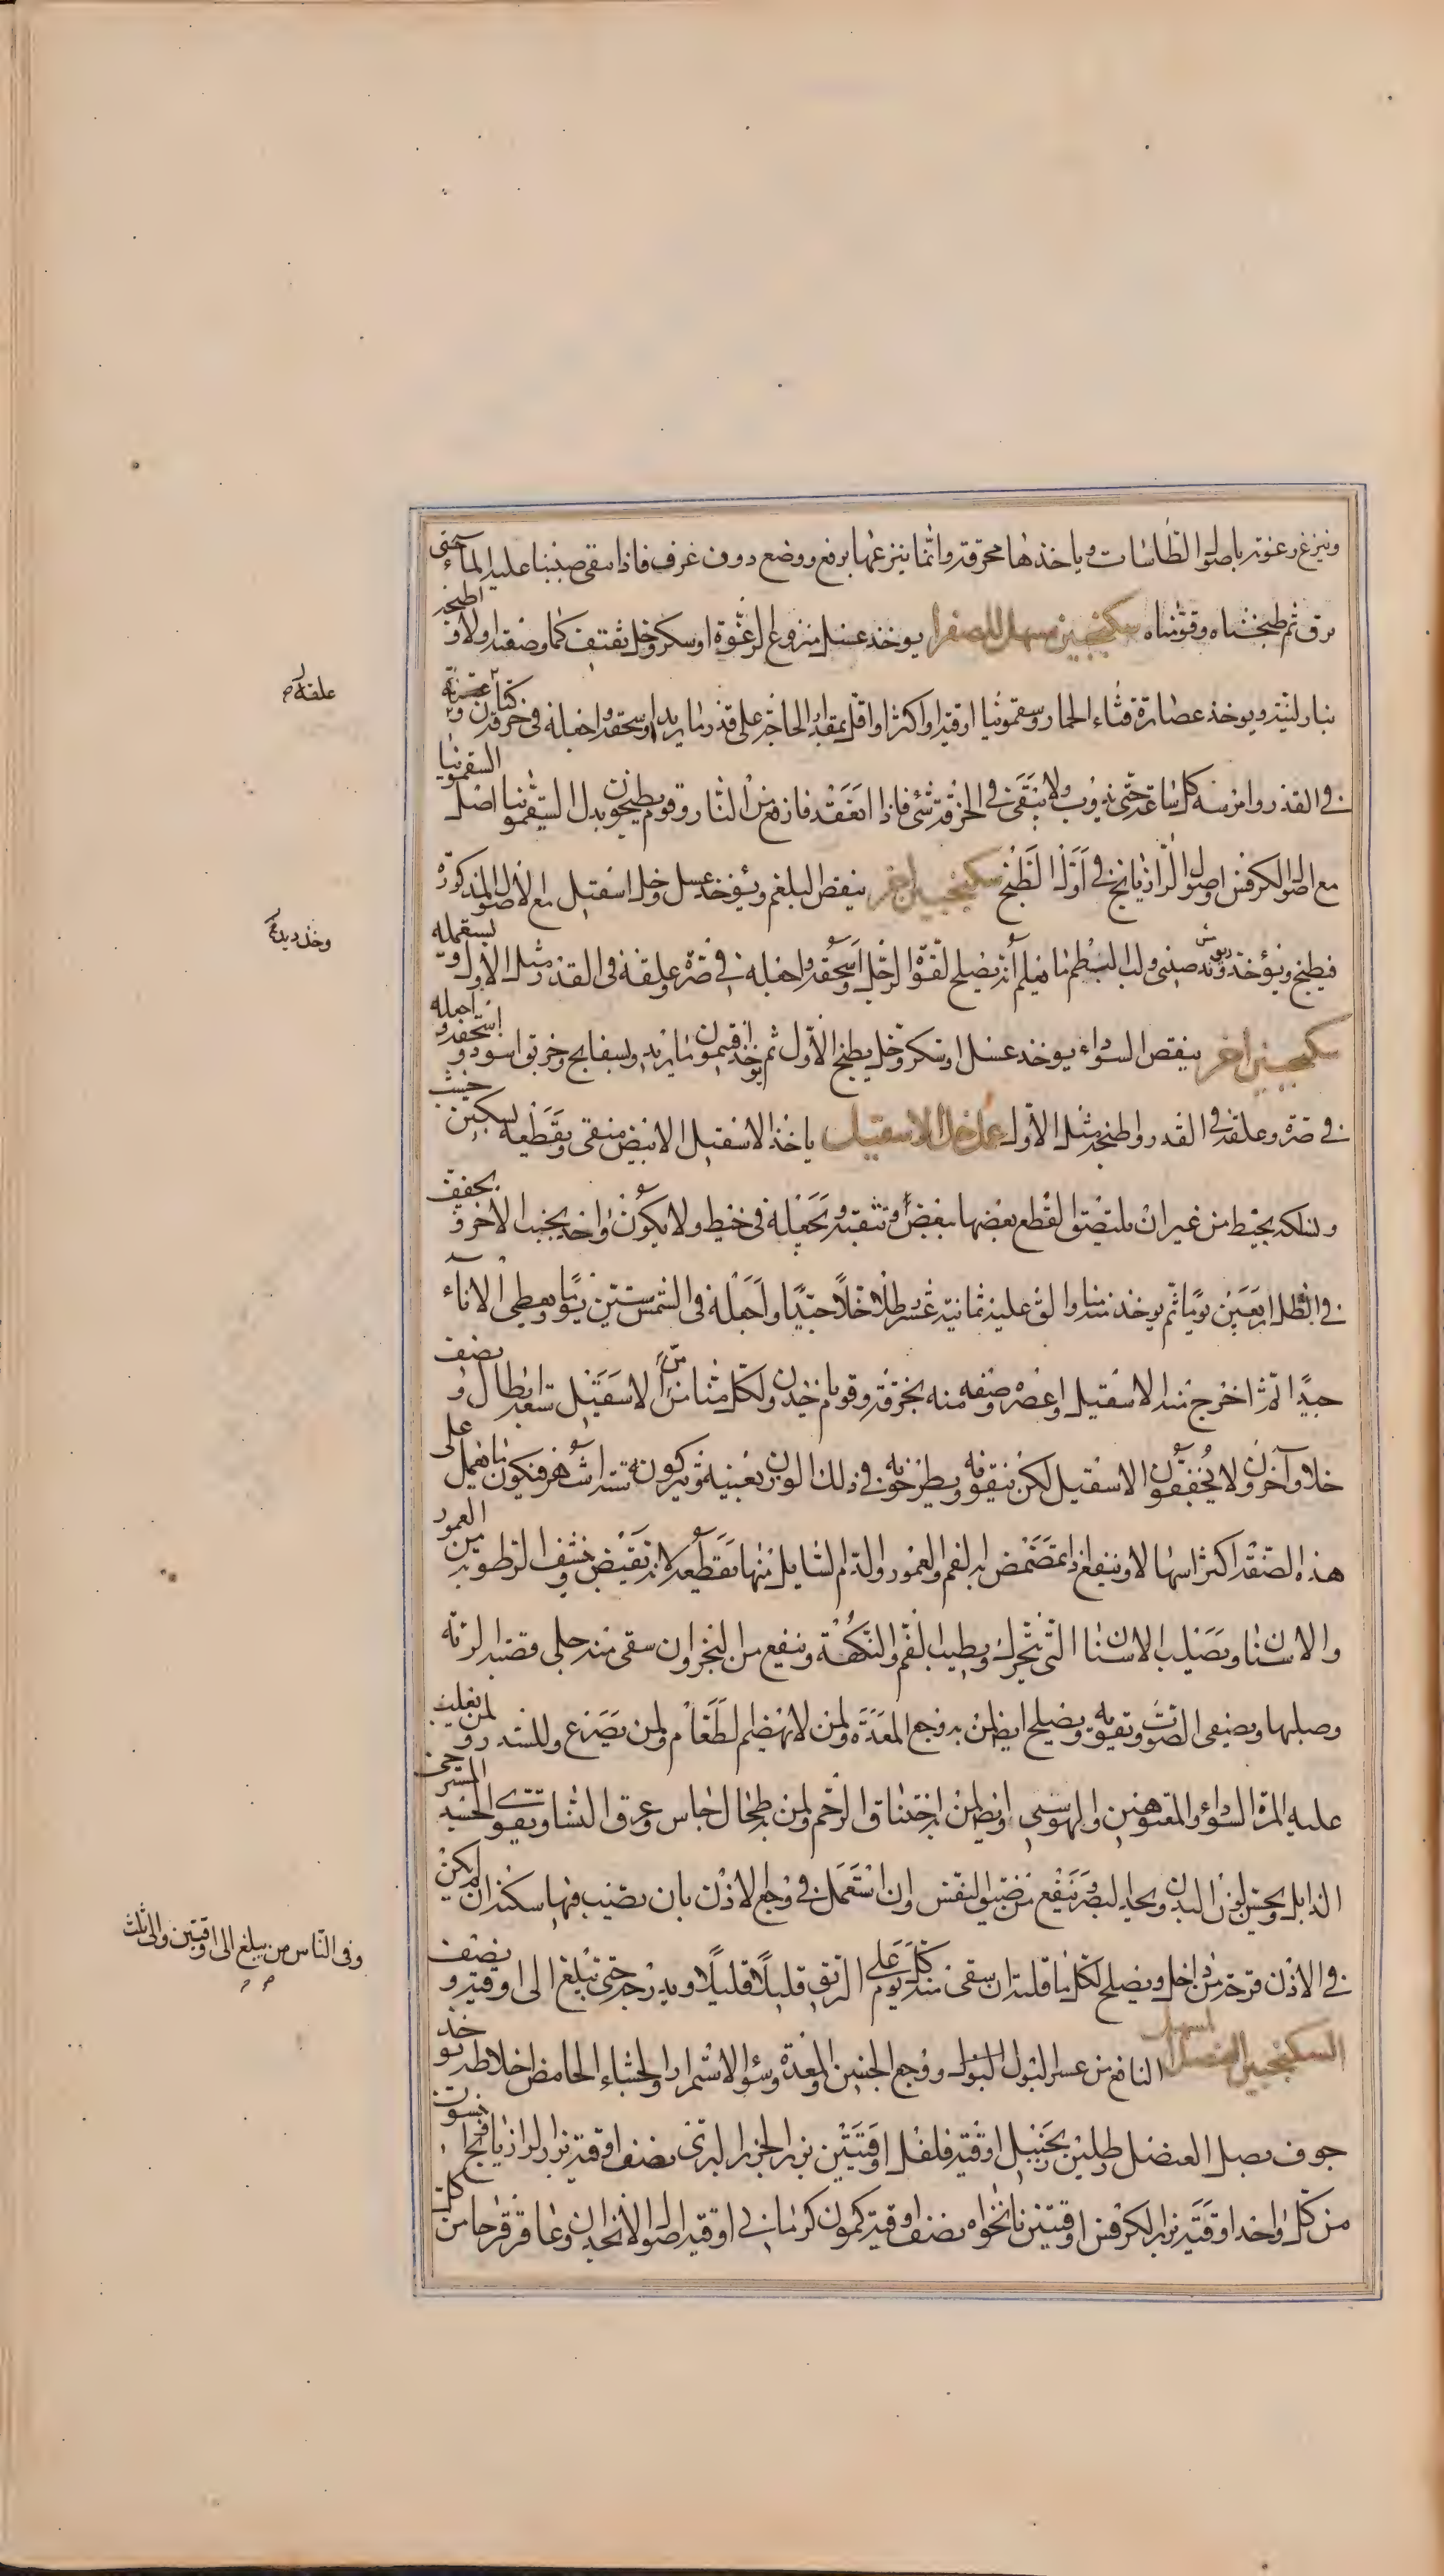 وينزع رغوته باصول الطاسات وياخذها محرقة وانما ينزعها برفع ووضع دون غرف فاذا نقى صببنا عليه الماء حتى
يرق ثم طبخناه وقومناه سكنجبين مسهل للصفرا يوخذ عسل منزوع الرغوة او سكر وخل ثقيف كما وصفته اولا و اطبخه
بنار لينة ويوخذ عصارة قثاء الحمار وسقمونيا اوقية او اكثر او اقل بمقدار الحاجة على قدر ما يريد او سحقه واجعله في خرقة كتان و
في القدر وامرسه كل ساعة حتى يذوب ولا يبقى في الخرقة شئ فاذا انعقد فارفعه من النار وقوم يطبخون بدل السقمونيا اصل السقمونيا
مع اصول الكرفس واصول الرازيانج في اول الطبخ سكنجبين اخر ينقص البلغم ويؤخذ عسل وخل اسقيل مع الاصول المذكورة
فيطبخ ويؤخذ ريوند صينى ولب البسطم ما يعلم أنه يصلح لقوة الرجل اسحقه واجعله في صرة وعلقه في القدر مثل الاول و يستعمله
سكنجبين اخر ينقص السوداء يوخذ عسل او سكر وخل يطبخ الاول ثم يوخذ افتيمون ما يريد وبسفايج وخربق اسود و اسحقه و اجعله
في صرة وعلقه في القدر واطبخه مثل الاول عمل خل الاسقيل ياخذ الاسقيل الابيض منقى ويقطعه بسكين خشب
ويسلكه بخيط من غير ان يلتصق القطع بعضها ببعض وتثقبه وتجعله في خيط ولا يكون واحد بجنب الاخر و يجفف
في الظل اربعين يوما ثم يوخذ منه منا والق عليه ثمانية عشر رطلا خلا جيدا واجعله في الشمس ستين يوما ويغطى الاناء
جيدا ثم اخرج منه الاسقيل واعصره وصفه منه بخرقة وقوم ياخذون ولكل منا من الاسقيل تسعة ارطال و نصف
خلا وآخرون لا يجففون الاسقيل لكن ينقونه ويطرحونه في ذلك الوزن بعينه ويتركونه ستة اشهر فيكون ما يعمل على
هذه الصفة اكثر اسهالا وينفع اذا تمضمض به الفم والعمور والدم السايل منها يقطعه لانه يقبض وينشف الرطوبة من العمور
والاسنان ويصلب الاسنان التى تتحرك ويطيب الفم والنكهة وينفع من البخر وان سقى منه جلى قصبة الرئة
وصلبها ويصفى الصوت ويقويه ويصلح ايضا لمن به وجع المعدة ولمن لا يهضم الطعام ولمن يصرع وللسدر و لمن يغلب
عليه المرة السوداء والمعتوهين والموسوسين وايضا لمن به اختناق الرحم ولمن به طحال جاس وعرق النسا ويقوى الجسد المسترخى
الذابل ويحسن لون البدن ويحد البصر وينفع من ضيق النفس وان استعمل في وجع الاذن بان يصب فيها سكنه ان لم يكن
في الاذن قرحة من داخل ويصلح لكل ما قلته ان سقى منه كل يوم على الريق قليلا قليلا ويدرجه حتى يبلغ الى اوقية و نصف
السكنجبين العنصلى المسهل النافع من عسر البول ووجع الجنبين والمعدة وسؤ الاستمراء والجشاء الحامض اخلاطه يوخذ
جوف بصل العنصل رطلين زنجبيل اوقية فلفل اوقيتين بزر الجزر البرى نصف اوقية بزر الرازيانج
من كل واحد اوقية بزر الكرفس اوقيتين نانخواه نصف اوقية كمون كرمانى اوقية اصول الانجدان وعاقرقرحا من كل
علقه
وفى الناس من يبلغ الى اوقيتين والى ثلث